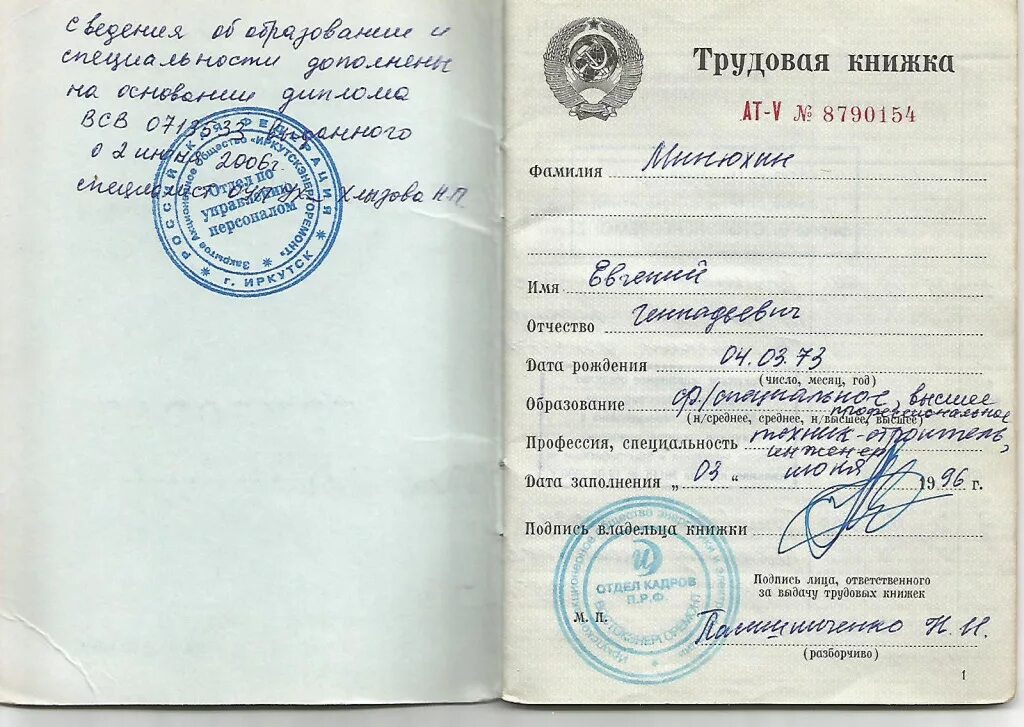 сведения об образовании и
специальности дополнены
на основании диплома
ВСВ 0713533 выданного
02 июня 2006г.
специалист Хлызова Н.П.
РОССИЙСКАЯ ФЕДЕРАЦИЯ
Закрытое Акционерное общество «ИРКУТСКЭНЕРГОРЕМОНТ»
Отдел по
управлению
персоналом
г. ИРКУТСК
Трудовая книжка
АТ-V № 8790154
Фамилия Минюхин
Имя Евгений
Отчество Геннадьевич
Дата рождения 04.03.73
(число, месяц, год)
Образование ср/специальное, высшее
профессиональное
(н/среднее, среднее, н/высшее, высшее)
Профессия, специальность техник-строитель,
инженер
Дата заполнения „03“ июня 1996 г.
Подпись владельца книжки
ОТДЕЛ КАДРОВ
П.Р.Ф.
ВОСТОКЭНЕРГОРЕМОНТ
Подпись лица, ответственного
за выдачу трудовых книжек
М. П.
Н. И.
(разборчиво)
1